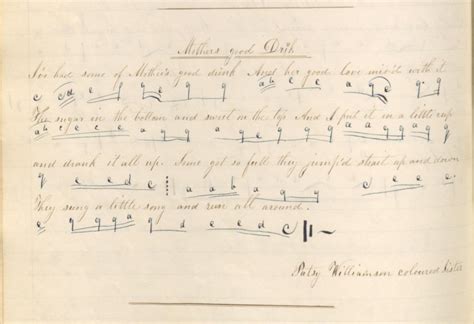 Mothers good Drik
I've had some of Mother's good drink And her good love mix'd with it
c c d e g g e g g a b c c a g g
The sugar in the bottom and sweet on the top And I put it in a little cup
a b c e c e a g g a g e g g g a a g g a g
and drank it all up. Some got so full they jump'd strait up and down
g e e d c a a b a g g c c c
They sung a little song and run all around.
e g g g a g d e e d c
Patsy Williamson coloured sister